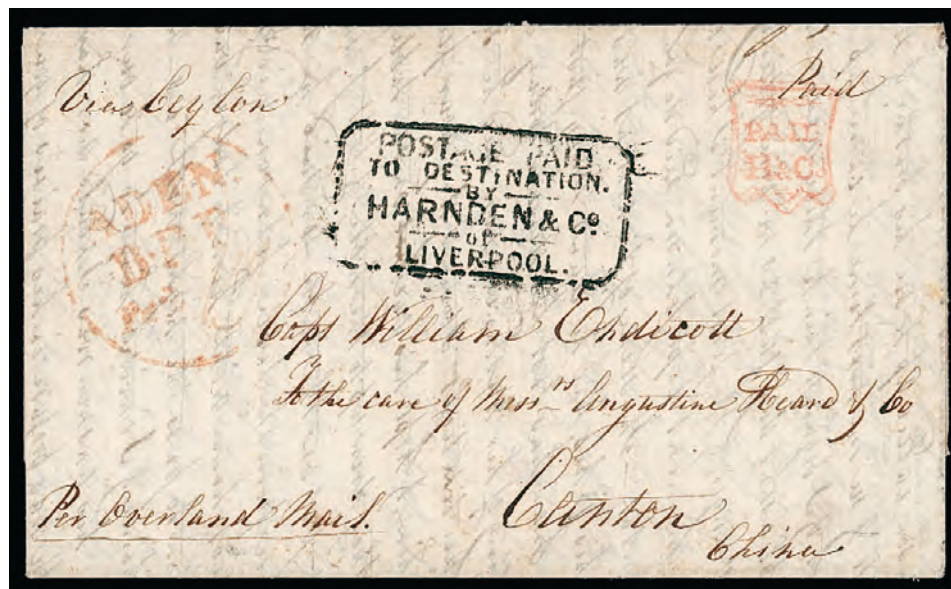 Via Ceylon
Paid
PAID
H&Co
POSTAGE PAID
TO DESTINATION.
BY
HARNDEN & Co.
OF
LIVERPOOL.
ADEN
Capt William Endicott
To the care of Messrs Augustine Heard & Co
Canton
China
Per Overland Mail.